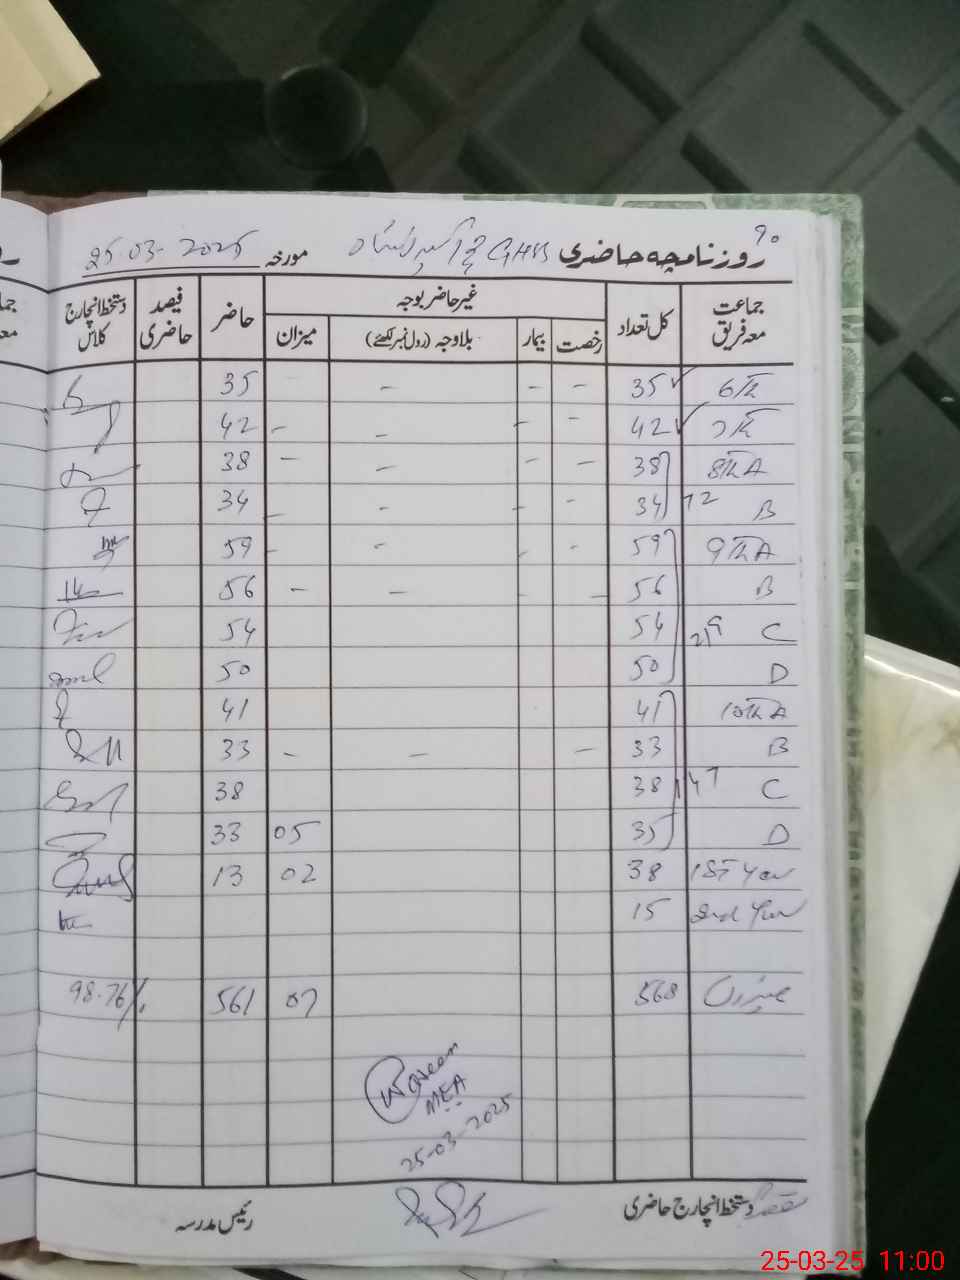 ۹۰
روزنامچہ حاضری GHSS مورخہ 25-03-2025
جماعت معہ فریق کل تعداد غیر حاضر بوجہ حاضر فیصد حاضری دستخط انچارج کلاس
رخصت بیمار بلاوجہ (رول نمبر لکھئے) میزان
6th 35 ✓ - - - 35
7th 42 ✓ - - - - 42
8th A 38 - - - - 38
B 34 72 - - - 34
9th A 59 - - - - 59
B 56 - - - - 56
C 54 219 54
D 50 50
10th A 41 41
B 33 - - - 33
C 38 147 38
D 35 33
1st Year 38 05 33
2nd Year 15 02 13
میزان 568 07 561 98.76%
Waseem
MEA
25-03-2025
دستخط انچارج حاضری رئیس مدرسہ
25-03-25 11:00